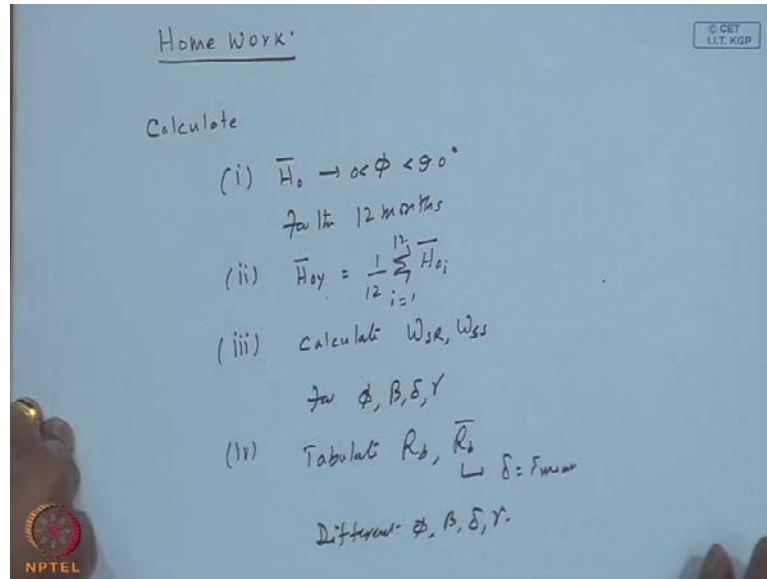 Home Work.
© CET
I.I.T. KGP
Calculate
(i) H̅₀ → 0< ϕ < 90°
for the 12 months
(ii) H̅₀y = 1/12 ∑_{i=1}^{12} H̅₀ᵢ
(iii) Calculate ω_SR, ω_SS
for ϕ, β, δ, γ
(iv) Tabulate R_b, R̅_b
↳ δ = δ_mean
Different ϕ, β, δ, γ.
NPTEL